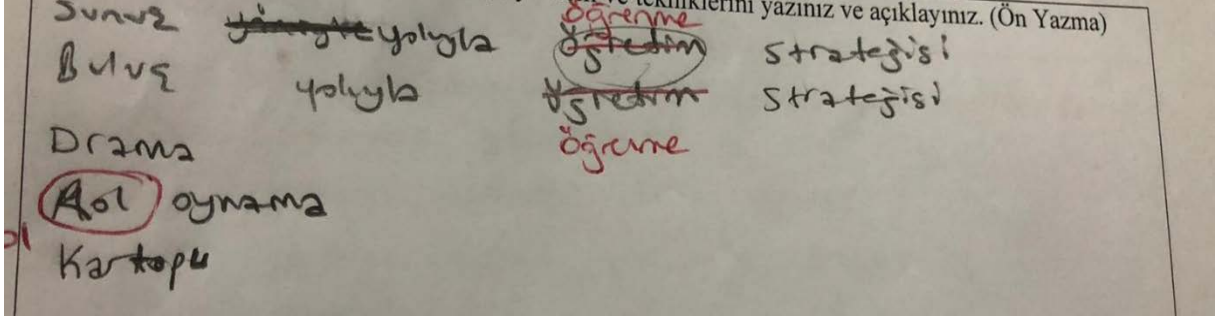 tekniklerini yazınız ve açıklayınız. (Ön Yazma)
öğrenme
Sunuş yoluyla öğretim stratejisi
Buluş yoluyla öğretim stratejisi
Drama öğrenme
Rol oynama
Kartopu